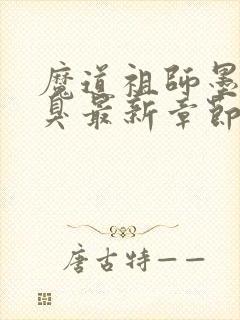 魔道祖師墨
臭最新章節
唐古特——